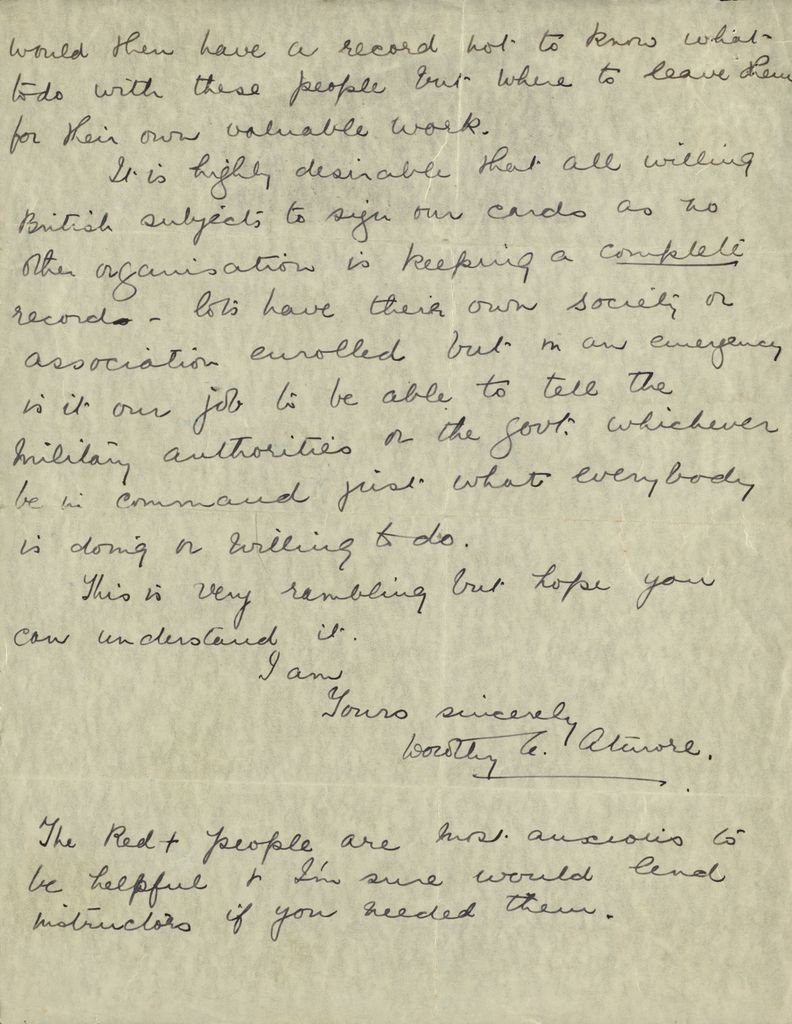 would then have a record not to know what
to do with these people but where to leave them
for their own valuable work.
It is highly desirable that all willing
British subjects to sign our cards as no
other organisation is keeping a complete
record - lots have their own society or
association enrolled but in an emergency
is it our job to be able to tell the
Military authorities or the govt. whichever
be in command just what everybody
is doing or willing to do.
This is very rambling but hope you
can understand it.
I am
Yours sincerely
Dorothy C. Atmore.
The Red + people are most anxious to
be helpful + I'm sure would lend
instructors if you needed them.